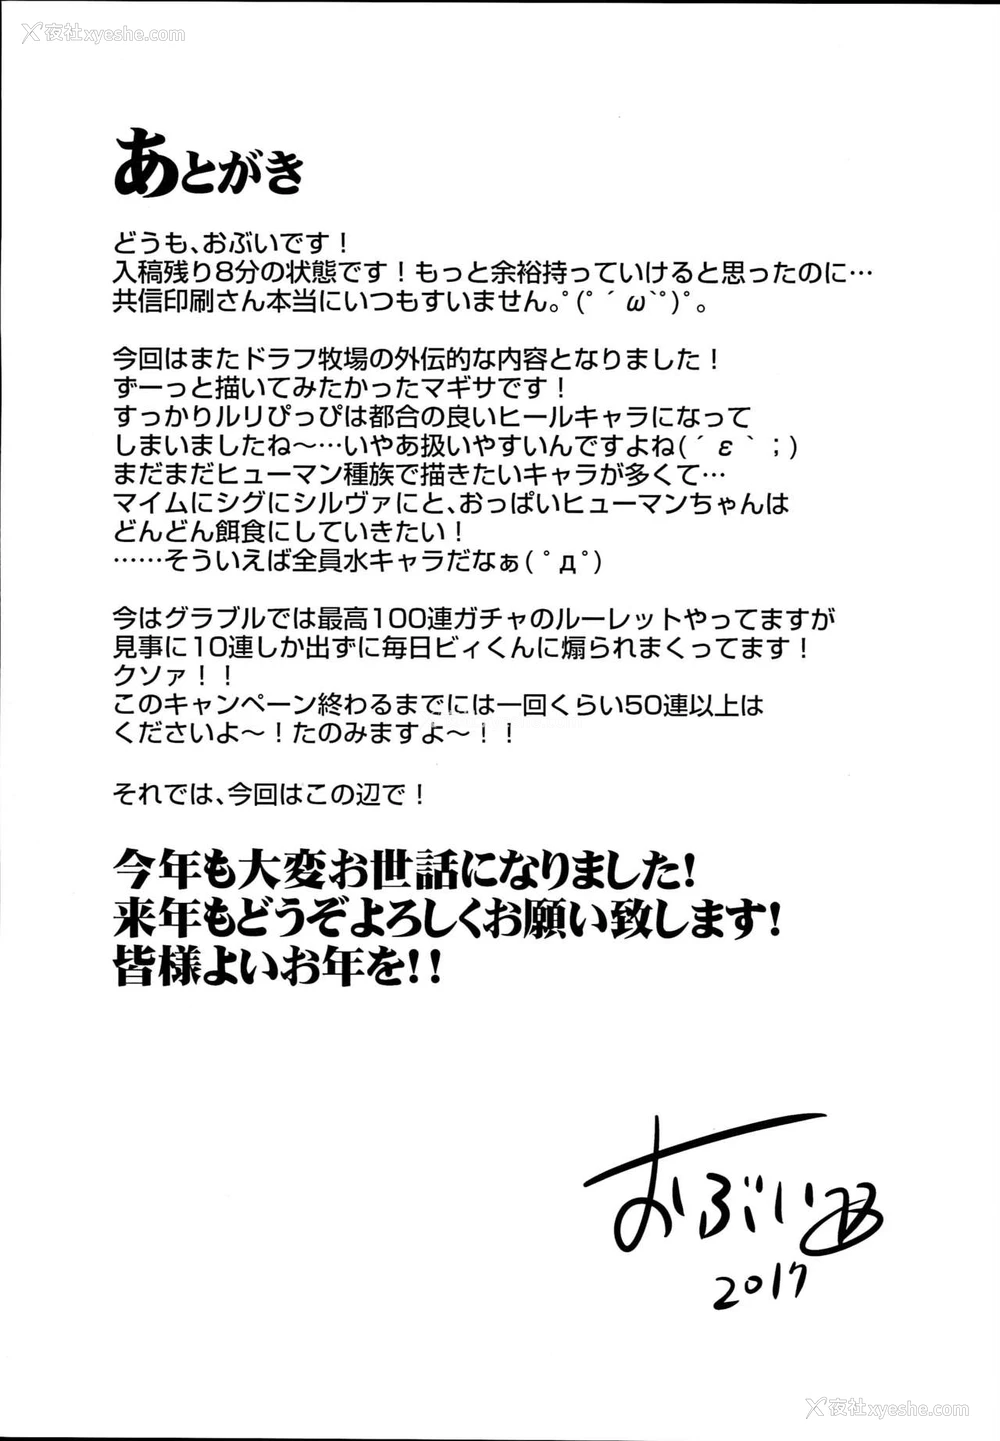 夜社xyeshe.com
夜社xyeshe.com
あとがき
どうも､おぶいです！
入稿残り8分の状態です！もっと余裕持っていけると思ったのに…
共信印刷さん本当にいつもすいません｡ﾟ(ﾟ´ω`ﾟ)ﾟ｡
今回はまたドラフ牧場の外伝的な内容となりました！
ずーっと描いてみたかったマギサです！
すっかりルリぴっぴは都合の良いヒールキャラになって
しまいましたね～…いやあ扱いやすいんですよね(´ε｀；)
まだまだヒューマン種族で描きたいキャラが多くて…
マイムにシグにシルヴァにと､おっぱいヒューマンちゃんは
どんどん餌食にしていきたい！
……そういえば全員水キャラだなぁ(ﾟдﾟ)
今はグラブルでは最高100連ガチャのルーレットやってますが
見事に10連しか出ずに毎日ビィくんに煽られまくってます！
クソァ！！
このキャンペーン終わるまでには一回くらい50連以上は
くださいよ～！たのみますよ～！！
それでは､今回はこの辺で！
今年も大変お世話になりました！
来年もどうぞよろしくお願い致します！
皆様よいお年を！！
おぶい
2017
夜社xyeshe.com